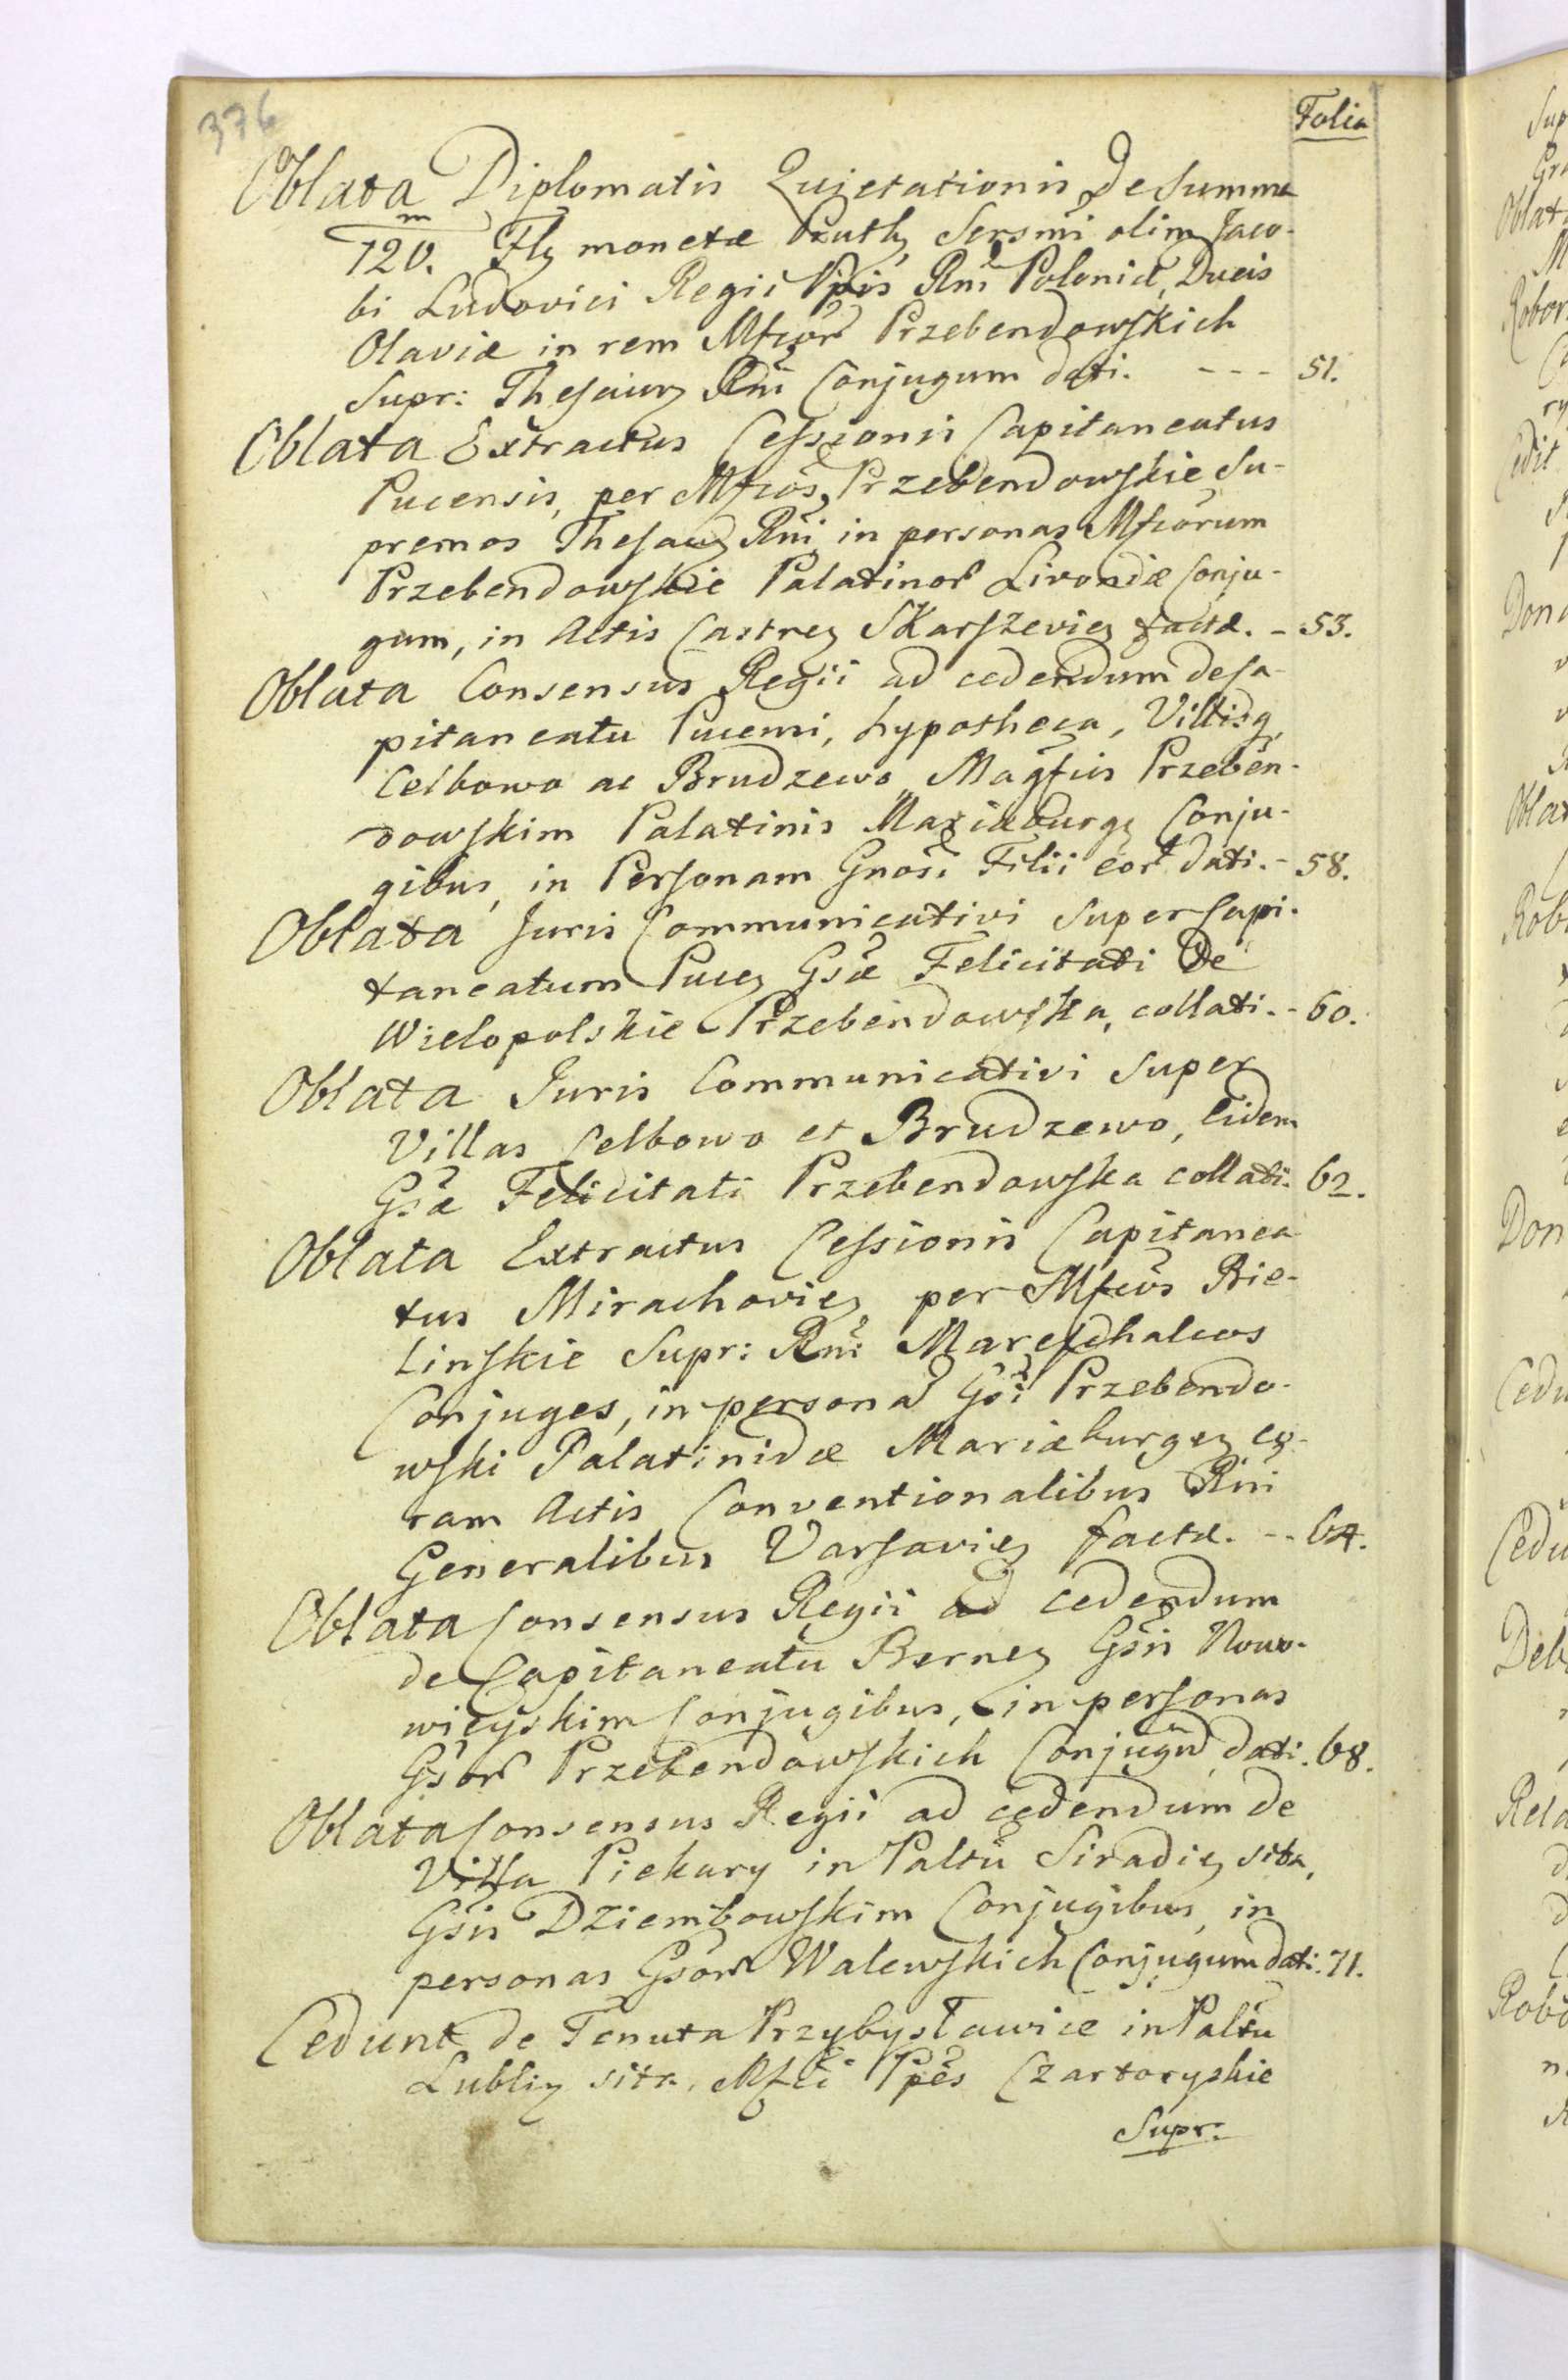 376
Folia
Oblata Diplomatis Quietationis de Summa
120.m Flę monetæ Pruth, Sersmi olim Jaco-
bi Ludovici Regii Ppis Rni Poloniæ, Ducis
Olaviæ in rem Mfcor Przebendowskich
Supr: Thesaurz Rni Conjugum dati. --- 51.
Oblata Extractus Cessionis Capitaneatus
Pucensis, per Mfcos Przebendowskie Su-
premos Thesaurz Rni in personas Mfcorum
Przebendowskie Palatinor Livoniæ Conju-
gum, in Actis Castreȝ Skarszevieȝ factæ. - 53.
Oblata Consensus Regii ad cedendum de Ca-
pitaneatu Pucensi, hypotheca, Villisq
Celbowo ac Brudzewo Magfcis Przeben-
dowskim Palatinis Mariæburgȝ Conju-
gibus, in Personam Gnosi Filii eor dati. - 58.
Oblata Juris Communicativi Super Capi-
taneatum Puceȝ Gsæ Felicitati de
Wielopolskie Przebendowska, collati. - 60.
Oblata Juris Communicativi Super
Villas Celbowo et Brudzewo, Eidem
Gsæ Felicitati Przebendowska collati. 62.
Oblata Extractus Cessionis Capitanea
tus Mirachovieȝ per Mfcos Bie-
linskie Supr: Rni Mareschalcos
Conjuges, in persona Gsi Przebendo-
wski Palatinidæ Mariæburgeȝ co-
ram Actis Conventionalibus Rni
Generalibus Varsavieȝ factæ. -- 64.
Oblata Consensus Regii ad cedendum
de Capitaneatu Berneȝ Gsis Nowo-
wieyskim Conjugibus, in personas
Gsor Przebendowskich Conjugū dati. 68.
Oblata Consensus Regii ad cedendum de
Villa Piekary in Paltu Siradieȝ sita,
Gsis Dziembowskim Conjugibus, in
personas Gsor Walewskich Conjugum dati. 71.
Cedunt de Tenuta Przybysławice in Paltu
Lubliȝ sita, Mfci Ppes Czartoryskie
Supr: